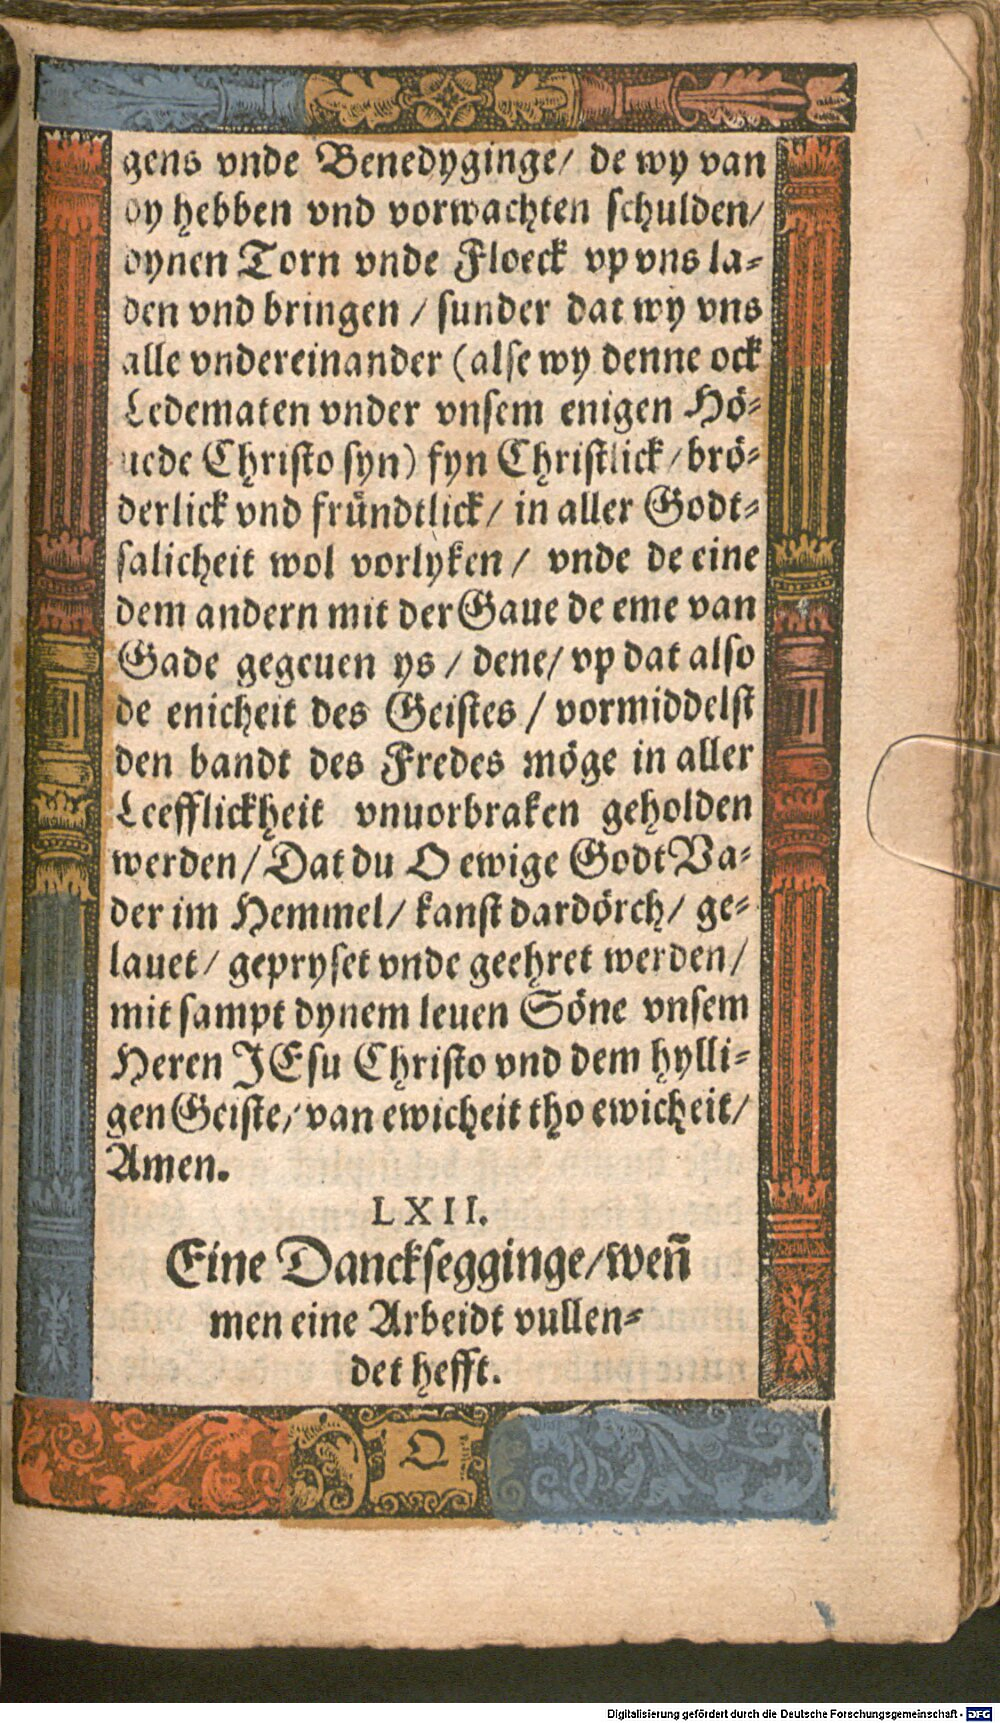 gens vnde Benedyginge/ de wy van
dy hebben vnd vorwachten schulden/
dynen Torn vnde Floeck vp vns la-
den vnd bringen / sunder dat wy vns
alle vndereinander (alse wy denne ock
Ledematen vnder vnsem enigen Hö-
uede Christo syn) fyn Christlick/ brö-
derlick vnd fründtlick/ in aller Godt-
salicheit wol vorlyken/ vnde de eine
dem andern mit der Gaue de eme van
Gade gegeuen ys / dene/ vp dat also
de enicheit des Geistes / vormiddelst
den bandt des Fredes möge in aller
Leefflickheit vnuorbraken geholden
werden/ Dat du O ewige Godt Va-
der im Hemmel/ kanst dardörch/ ge-
lauet/ gepryset vnde geehret werden/
mit sampt dynem leuen Söne vnsem
Heren JEsu Christo vnd dem hylli-
gen Geiste/ van ewicheit tho ewicheit/
Amen.
LXII.
Eine Danckseggingе/ wen̄
men eine Arbeidt vullen-
det hefft.
Q
Digitalisierung gefördert durch die Deutsche Forschungsgemeinschaft - DFG